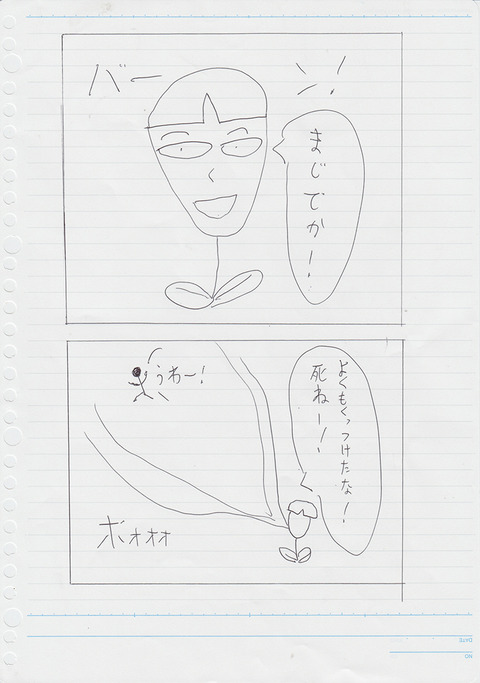 バーン!
まじでかー!
うわー!
よくもくっつけたな!
死ねー!
ボォォォ
DATE
NO